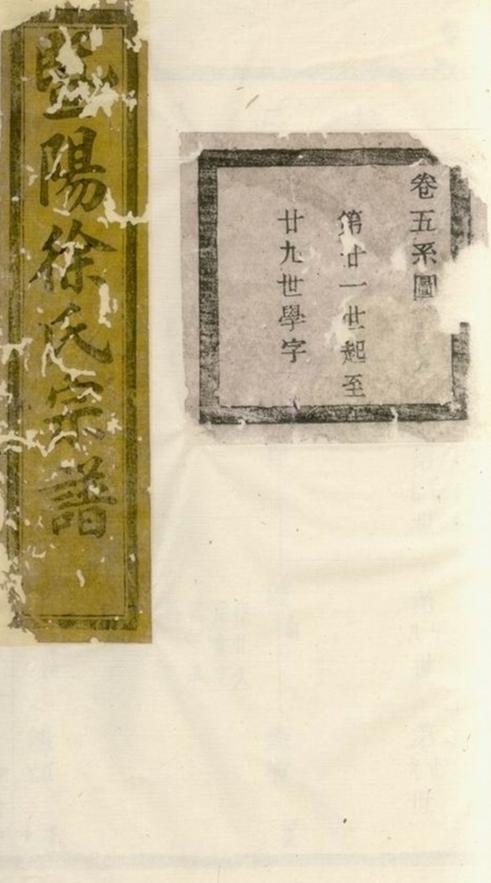 暨陽徐氏宗譜
卷五系圖
第廿一世起至
廿九世學字